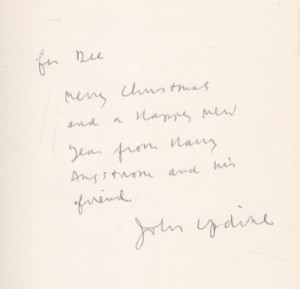 for Bee
Merry Christmas
and a Happy New
Year from Harry
Angstrom and his
friend
John Updike